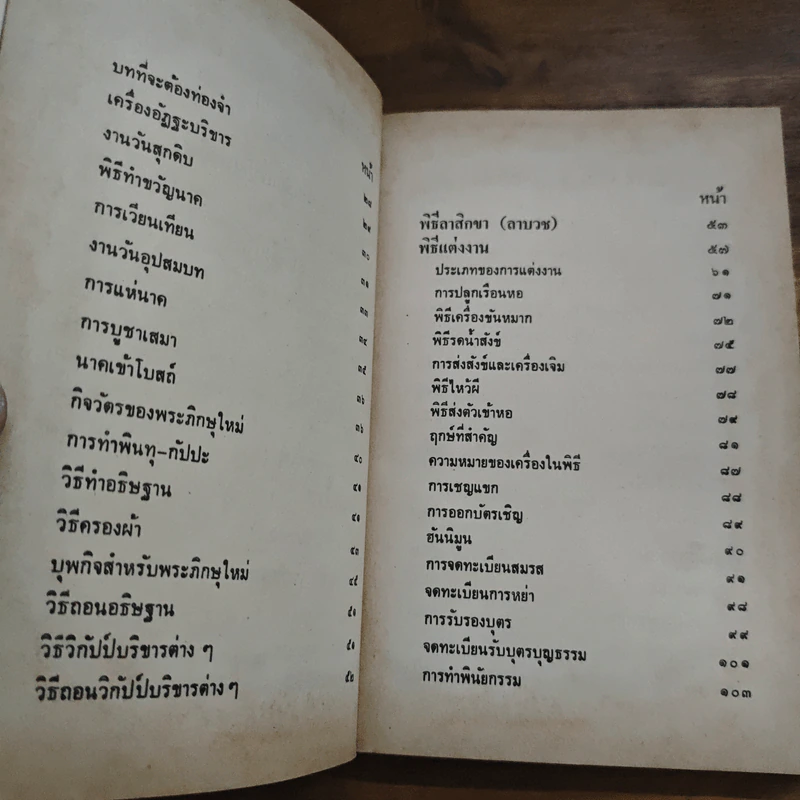 หน้า
บทที่จะต้องท่องจำ ๒๘
เครื่องอัฏฐะบริขาร ๒๙
งานวันสุกดิบ ๓๐
พิธีทำขวัญนาค ๓๑
การเวียนเทียน ๓๓
งานวันอุปสมบท ๓๔
การแห่นาค ๓๕
การบูชาเสมา ๓๖
นาคเข้าโบสถ์ ๓๖
กิจวัตรของพระภิกษุใหม่ ๔๐
การทำพินทุ-กัปปะ ๔๑
วิธีทำอธิษฐาน ๔๑
วิธีครองผ้า ๔๓
บุพกิจสำหรับพระภิกษุใหม่ ๔๕
วิธีถอนอธิษฐาน ๕๑
วิธีวิกัปป์บริขารต่าง ๆ ๕๑
วิธีถอนวิกัปป์บริขารต่าง ๆ ๕๒
หน้า
พิธีลาสิกขา (ลาบวช) ๕๓
พิธีแต่งงาน ๕๗
ประเภทของการแต่งงาน ๖๑
การปลูกเรือนหอ ๗๑
พิธีเครื่องขันหมาก ๗๒
พิธีรดน้ำสังข์ ๗๕
การส่งสังข์และเครื่องเจิม ๗๗
พิธีไหว้ผี ๗๘
พิธีส่งตัวเข้าหอ ๗๙
ฤกษ์ที่สำคัญ ๘๑
ความหมายของเครื่องในพิธี ๘๗
การเชญแขก ๘๘
การออกบัตรเชิญ ๘๙
ฮันนิมูน ๙๐
การจดทะเบียนสมรส ๙๑
จดทะเบียนการหย่า ๙๘
การรับรองบุตร ๙๙
จดทะเบียนรับบุตรบุญธรรม ๑๐๑
การทำพินัยกรรม ๑๐๓